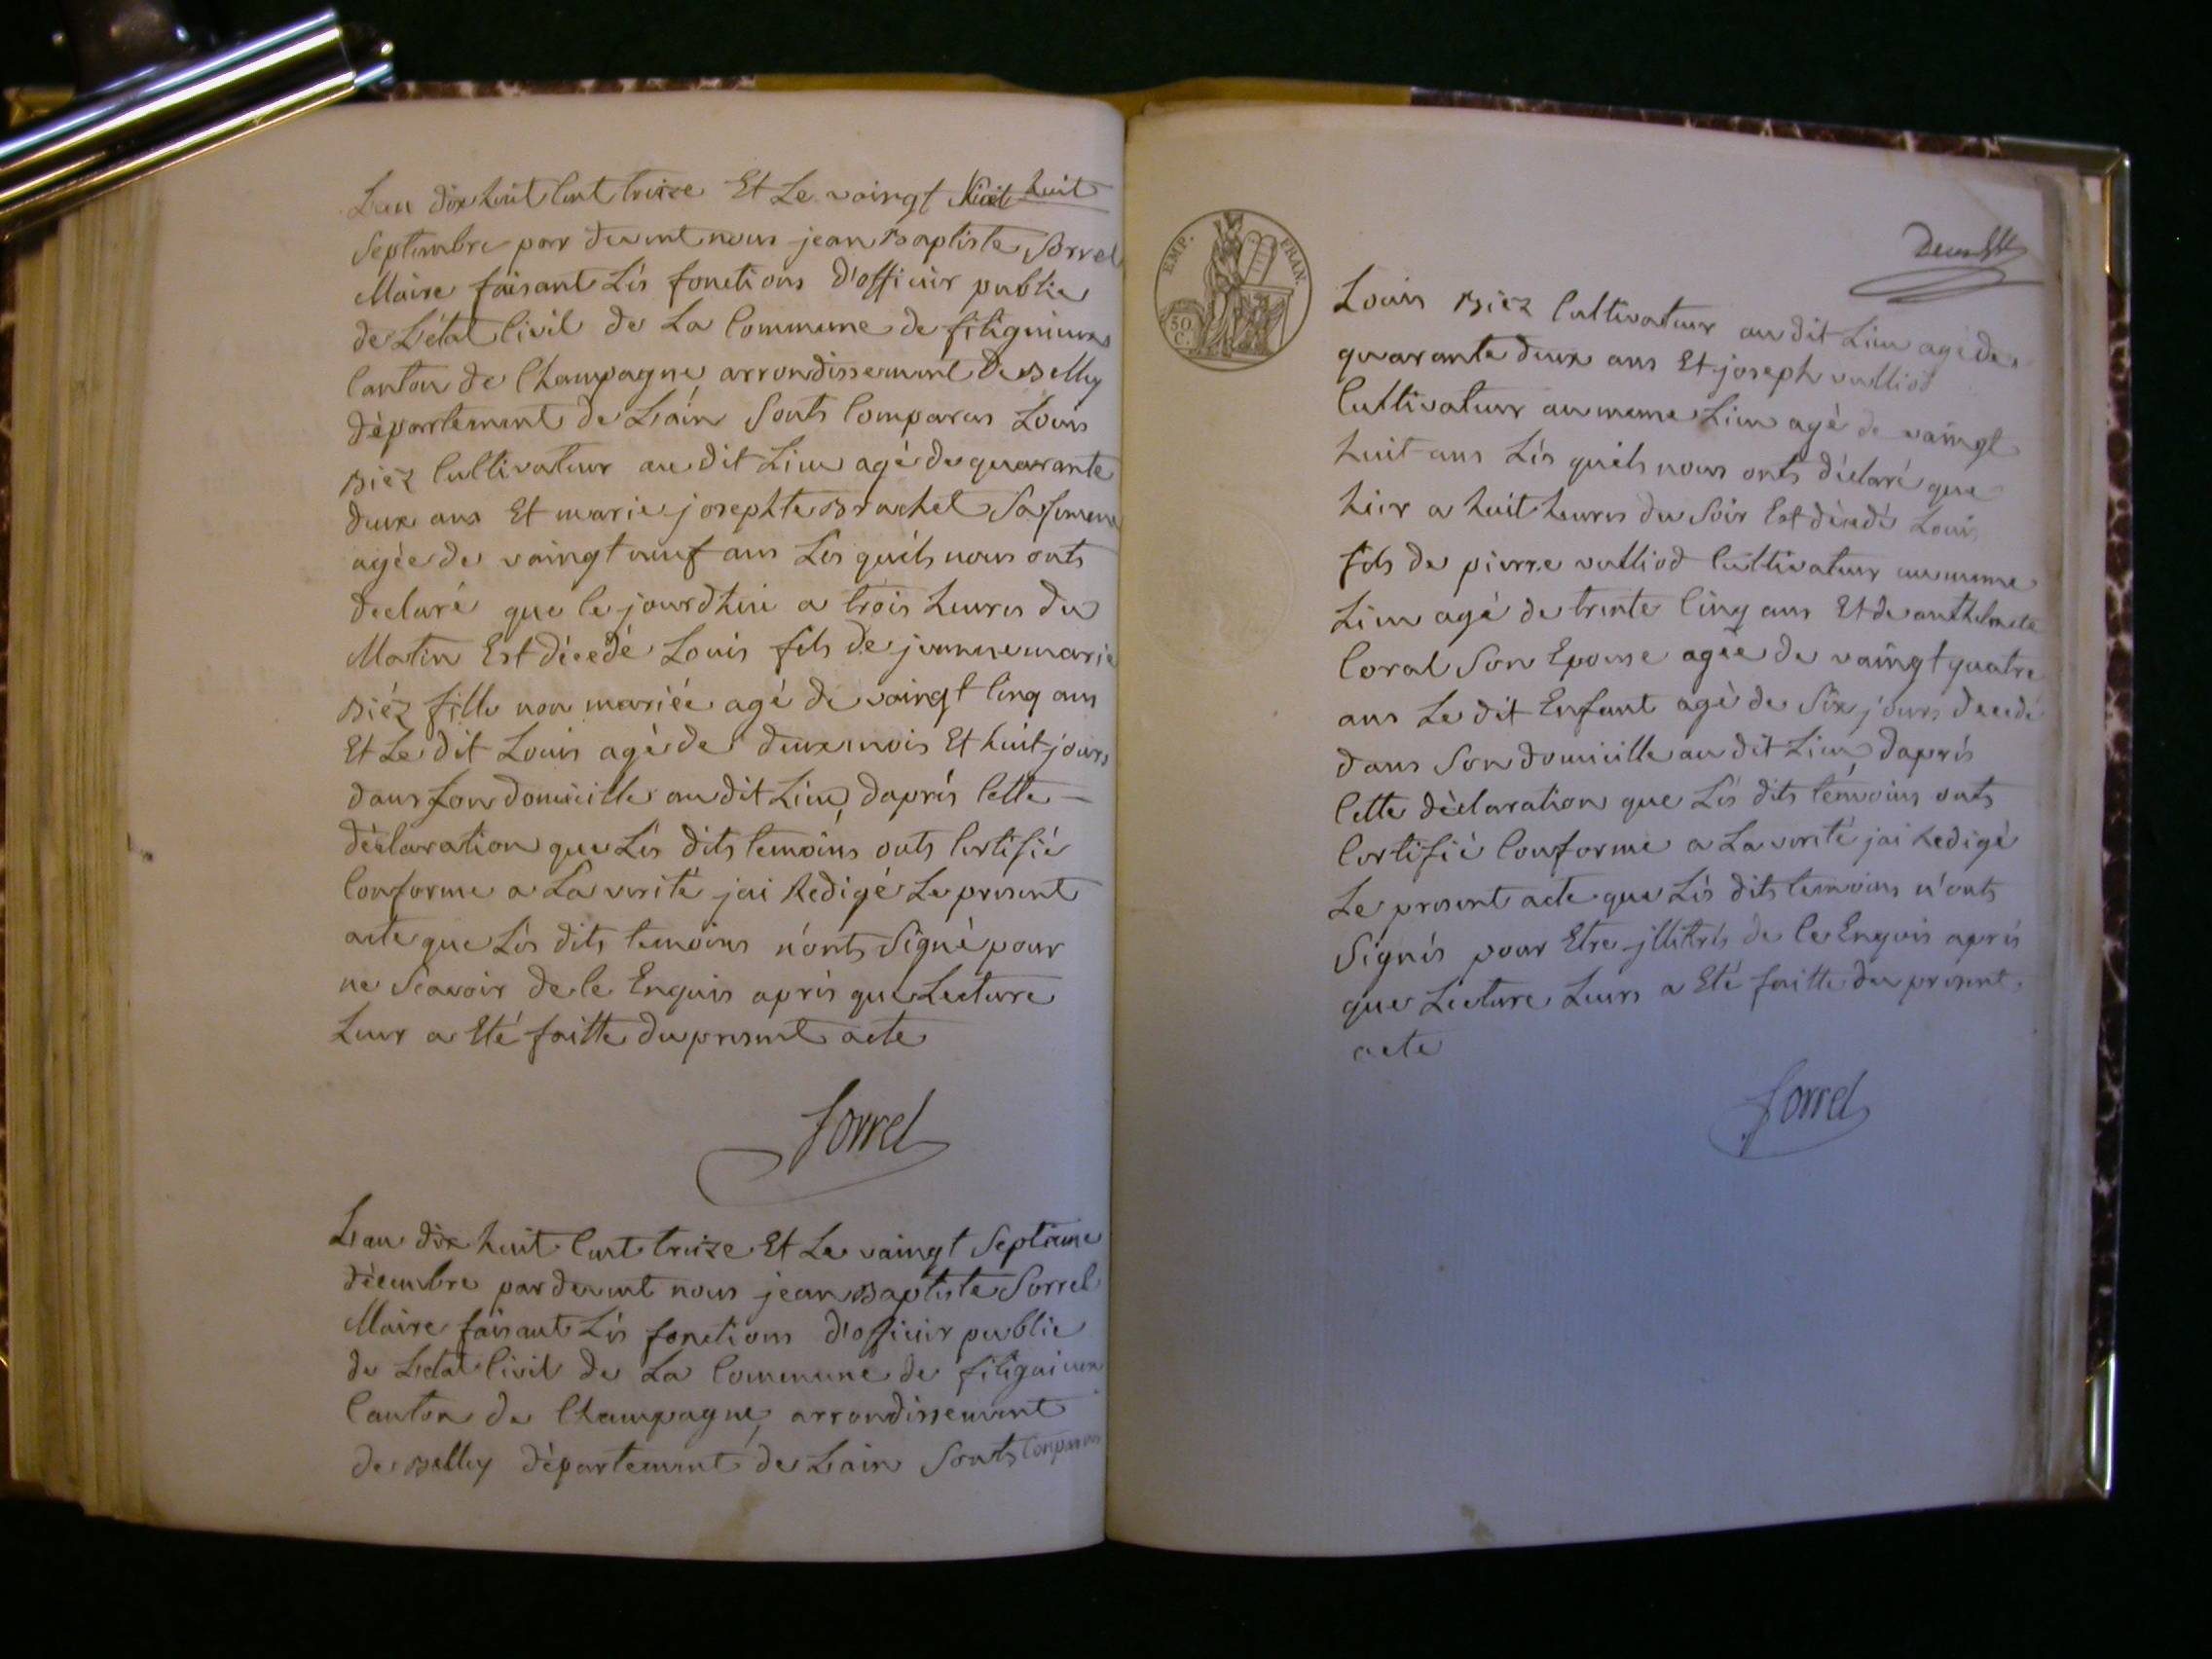 L'an dix huit Cent treize Et Le vaingt huit
Septembre par devent nous jean Baptiste Sorrel
Maire faisant Lés fonctions d'officier public
de L'état Civil de La Commune de filignieux
Canton de Champagne arrondissement de Belley
département de L'ain Sonts Comparus Louis
Biéz Cultivateur au dit Lieu agé de quarante
deux ans Et marie josephte Brachet Sa femme
agée de vaingt neuf ans Les quéls nous onts
declaré que le jourdhui a trois heures du
Matin Est décedé Louis fils de jeanne marie
Biéz fille non mariée agé de vaingt Cinq ans
Et Le dit Louis agé de deux mois Et huit jours
dans Son domicille au dit Lieu, daprés Cette
déclaration que Lés dits temoins onts Certifié
Conforme a La verité jai Redigé Le present
acte que Lés dits temoins n'onts Signé pour
ne Scavoir de Ce Enquis aprés que Lecture
Leur a Eté faitte du present acte
Sorrel
L'an dix huit Cent treize Et Le vaingt Septieme
décembre par devent nous jean Baptiste Sorrel
Maire faisant Lés fonctions d'officier public
de L'etat Civil de La Commune de filignieux
Canton de Champagne, arrondissement
de Belley département de L'ain Sonts Comparus
EMP. FRAN.
50 C.
Louis Biéz Cultivateur au dit Lieu agé de
quarante deux ans Et joseph vulliod
Cultivateur au meme Lieu agé de vaingt
huit ans Lés quéls nous onts déclaré que
hier a huit heures du Soir Est décedé Louis
fils de pierre vulliod Cultivateur au meme
Lieu agé de trente Cinq ans Et de anthelmete
Coral Son Epouse agée de vaingt quatre
ans Le dit Enfant agé de Six jours decedé
dans Son domicille au dit Lieu, daprés
Cette déclaration que Lés dits témoins onts
Certifié Conforme a La verité jai Redigé
Le present acte que Lés dits temoins n'onts
Signés pour Etre jllitrés de Ce Enquis aprés
que Lecture Leurs a Eté faitte du present
acte
Sorrel